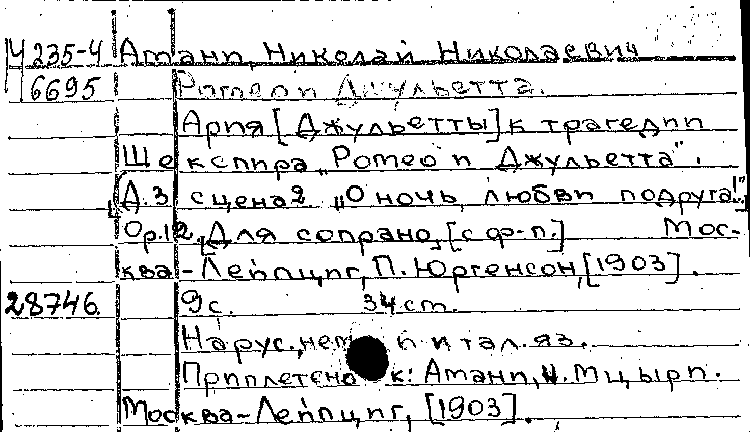 Ч 235-4 Амани, Николай Николаевич
6695 Ромео и Джульетта.
Ария [Джульетты] к трагедии
Шекспира „Ромео и Джульетта".
[Д.3 сцена 2 „О ночь, любви подруга!"]
Op.12. [Для сопрано] [с ф-п.] Мос-
ква-Лейпциг, П. Юргенсон, [1903].
28746. 9с. 34 cm.
На рус., нем. и итал. яз.
Приплетено к: Амани, Н. Мцыри.
Москва-Лейпциг, [1903].